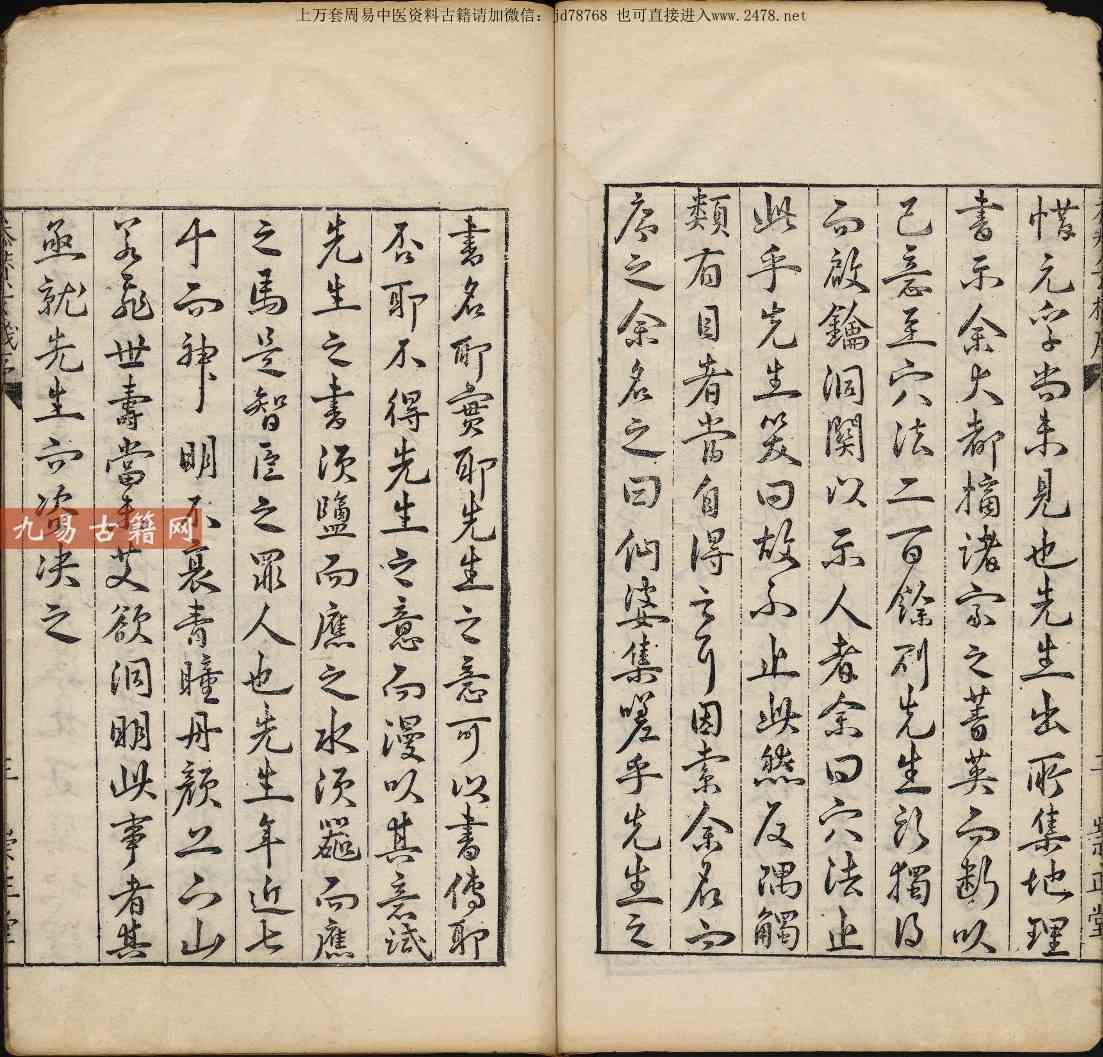 上万套周易中医资料古籍请加微信：jd78768 也可直接进入www.2478.net
惜元字尚未見也先生出所集地理
書示余大都摘諸家之菁英而斷以
己意至穴法二百餘則先生所獨得
而啟鑰洞関以示人者余曰穴法止
此乎先生笑曰故不止此然反隅觸
類有目者當自得之耳因索余名而
序之余名之曰仙婆集嗟乎先生之
書名耶實耶先生之意可以書傳耶
否耶不得先生之意而漫以其意試
先生之書須鹽而應之水須器而應
之馬是智臣之罪人也先生年近七
十而神明不衰青瞳丹顏上下山
若飛世壽當未艾欲洞明此事者其
亟就先生而決之
九易古籍网
崇正堂